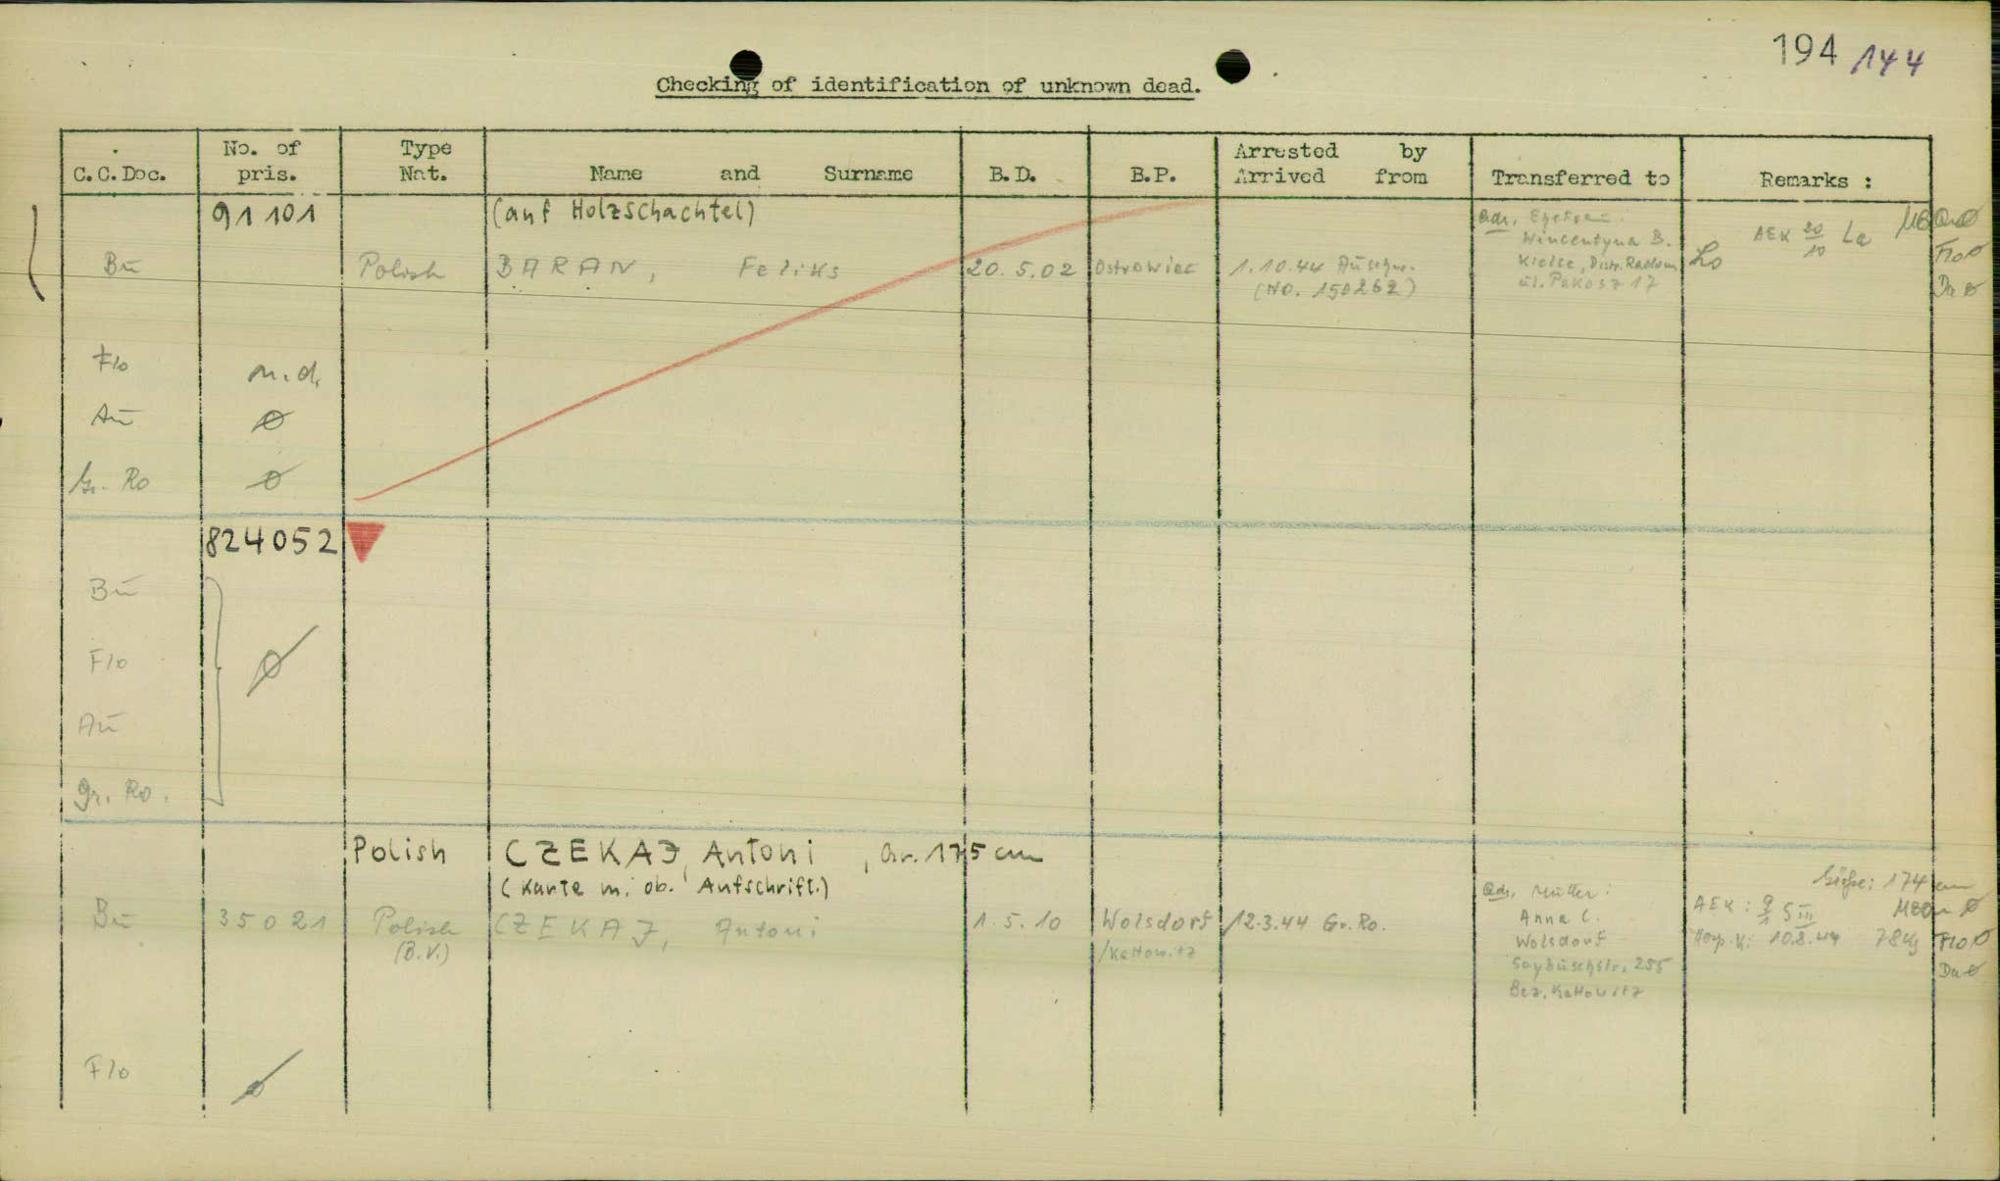 194 144
Checking of identification of unknown dead.
C.C.Doc. No. of pris. Type Nat. Name and Surname B.D. B.P. Arrested by Arrived from Transferred to Remarks :
91101 (auf Holzschachtel)
Bū Polish BARAN, Feliks 20.5.02 Ostrowiec 1.10.44 Auschw. (No. 150262)
Adr. Ehefrau:
Wincentyna B.
Kielce, Distr. Radom
ul. Pakosz 17
AEK 20/10 La
Flo ø
Da ø
Flo n.d.
Aū ø
Gr. Ro ø
824052
Bū
Flo ø
Aū
Gr. Ro.
Polish CZEKAJ, Antoni, Gr. 175 cm
(Karte m. ob. Aufschrift.)
Bū 35021 Polish (B.V.) CZEKAJ, Antoni 1.5.10 Wolsdorf /Kattowitz 12.3.44 Gr. Ro.
Adr. Mutter:
Anna C.
Wolsdorf
Saybuschstr. 255
Bez. Kattowitz
Größe: 174 cm
AEK:
10.8.44 78 kg
Flo ø
Da ø
Flo ø